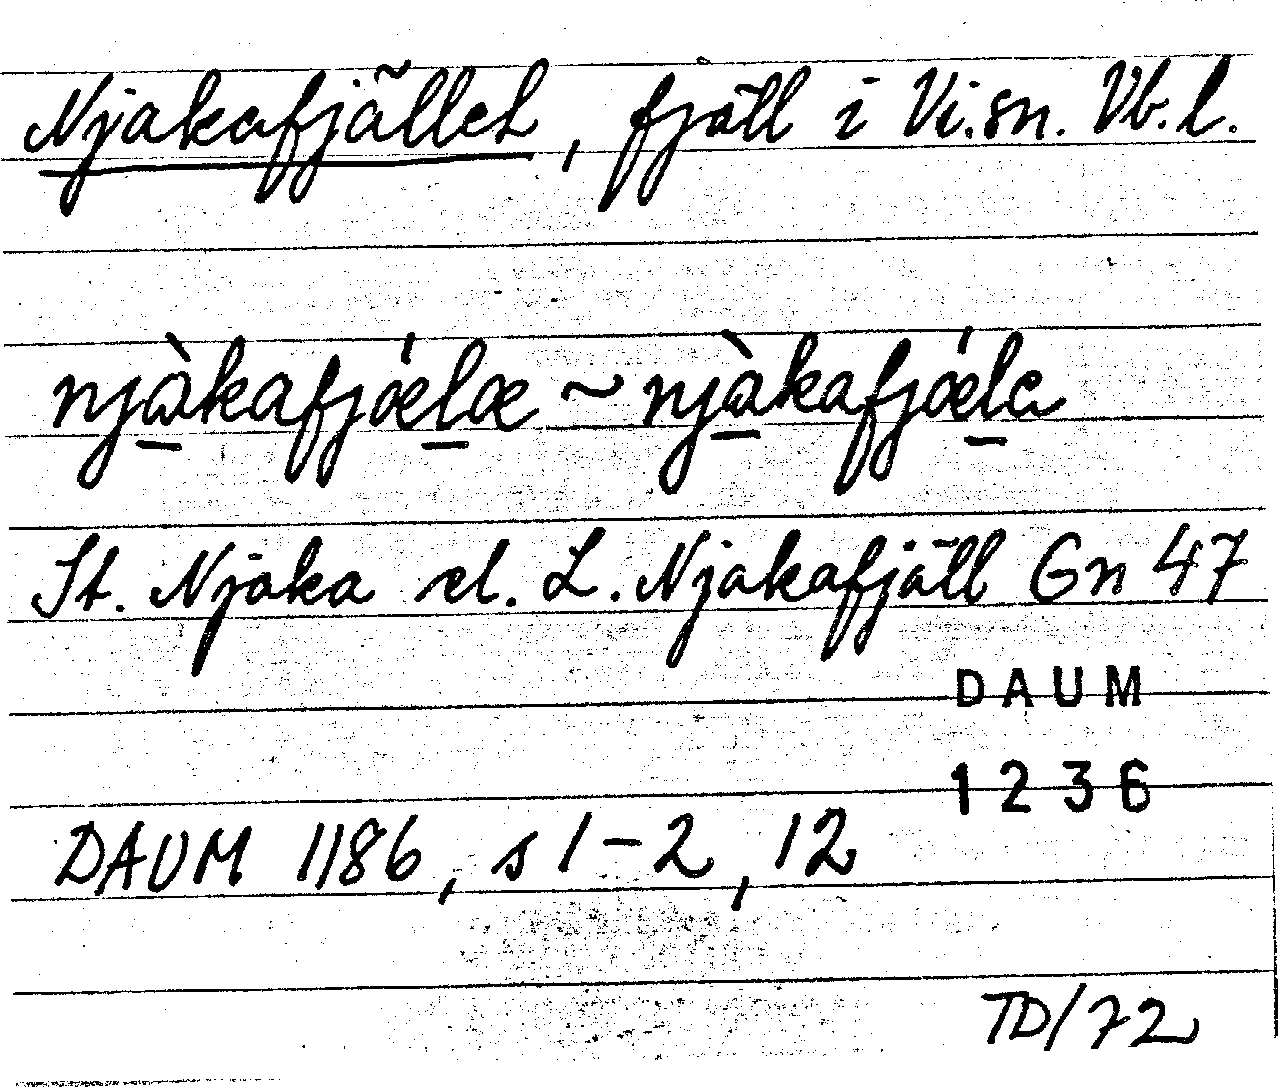 Njakafjället, fjäll i Vi.sn. Vb.l.
njàkafjǽlæ ~ njàkafjǽle
St. Njaka el. L. Njakafjäll Gn 47
DAUM
1236
DAUM 1186, s 1-2, 12
TD/72